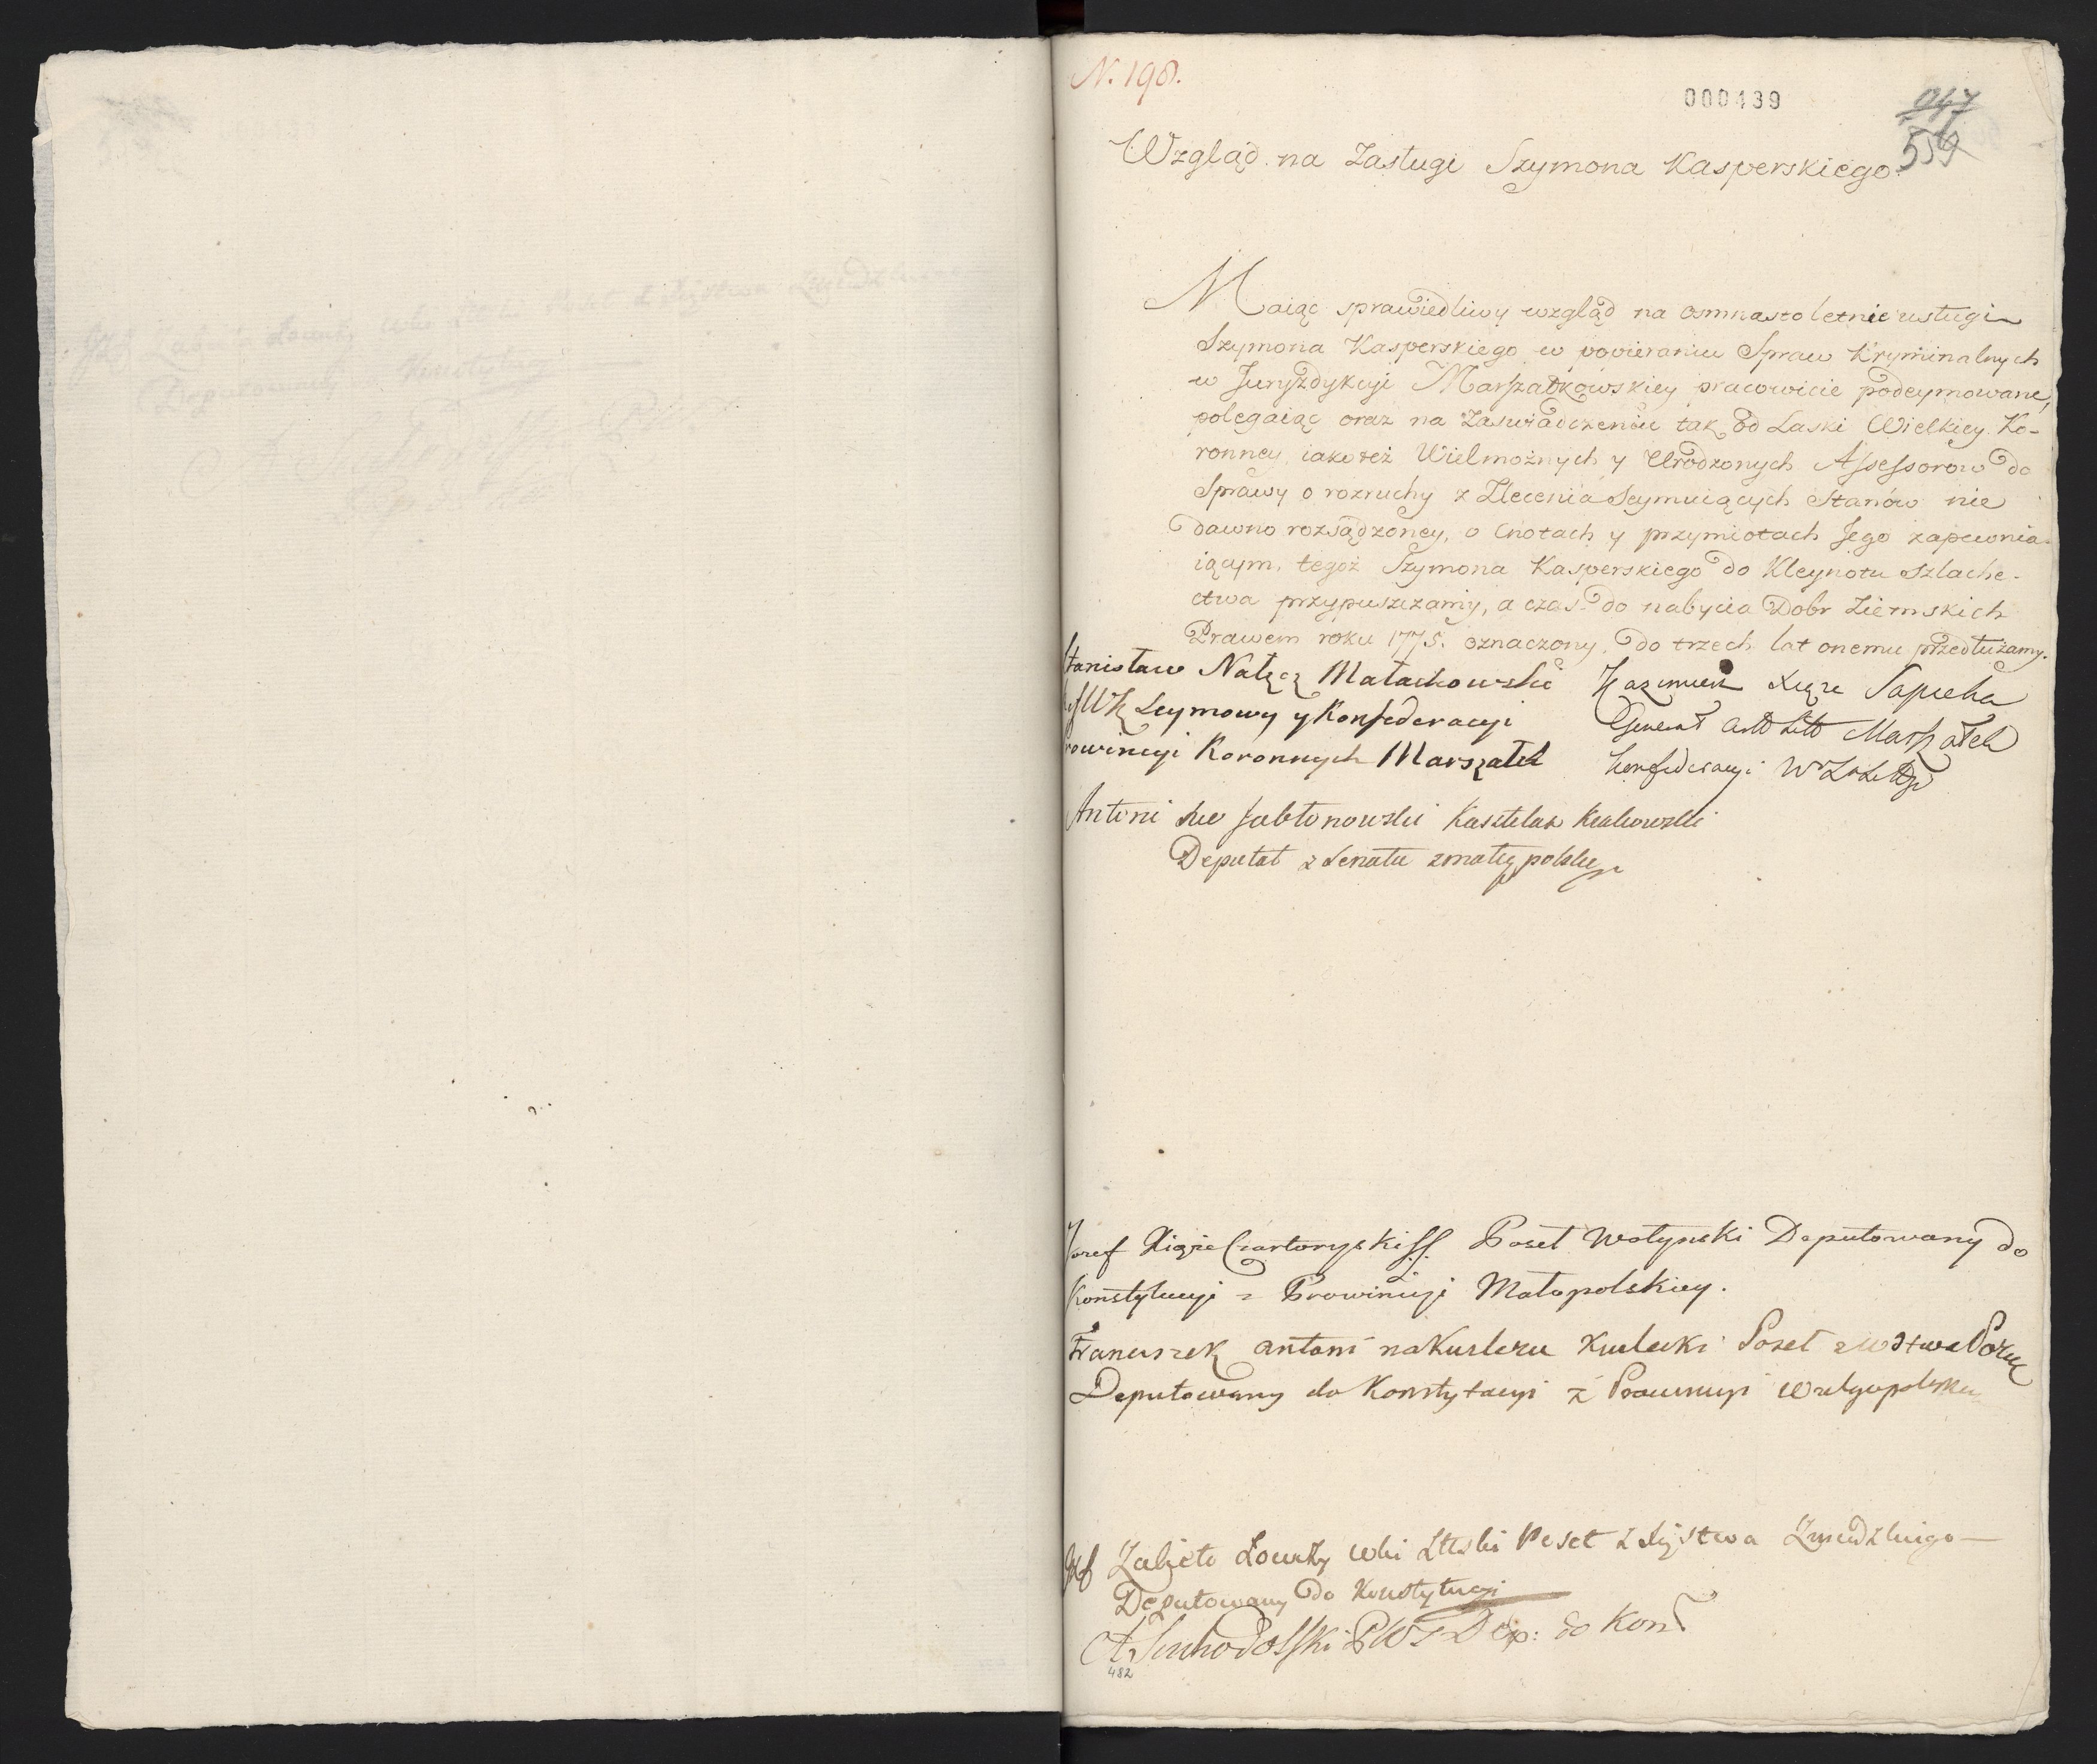 N. 198.
000439
047
559
Wzgląd na Zasługi Szymona Kasperskiego.
Maiąc sprawiedliwy wzgląd na osmnasto letnie usługi
Szymona Kasperskiego w popieraniu Spraw Kryminalnych
w Juryzdykcyi Marszałkowskiey pracowicie podeymowane,
polegaiąc oraz na Zaswiadczeniu tak od Laski Wielkiey Ko-
ronney iako też Wielmożnych y Urodzonych Assessorow do
Sprawy o rozruchy z Zlecenia Seymuiących Stanów nie
dawno rozsądzoney, o Cnotach y przymiotach Jego zapewnia-
iącym, tegoż Szymona Kasperskiego do Kleynotu Szlache-
ctwa przypuszczamy, a czas do nabycia Dobr Ziemskich
Prawem roku 1775. oznaczony, do trzech lat onemu przedłużamy.
Stanisław Nałęcz Małachowski
Seymowy y Konfederacyi
Prowincyi Koronnych Marszałek
Kazimierz Xiąże Sapieha
Generał Artt Litt Marszałek
Konfederacyi W X Litt
Antoni Jabłonowski Kasztelan Krakowski
Deputat z Senatu z małey polskiey
Jozef Xiąże Czartoryski Poseł Wołynski Deputowany do
Konstytucyi z Prowincyi Małopolskiey.
Franciszek Antoni na Kurlczu Poseł z Wdztwa
Deputowany do Konstytucyi z Prowincyi Wielgopolskiey
Zabiełło Łowczy Wki Lttski Poseł z Xięstwa Zmudzkiego
Deputowany do Konstytucyi
A. Suchodolski P W S Dep: do Konst
482